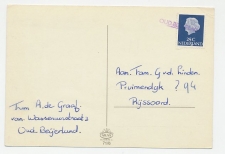 NEDERLAND
Aan Fam. G. v.d. Linden.
Pruimendijk 94
Rijsoord.
Fam A. de Graaf.
van Wassenaerstraat
Oud Beijerland.